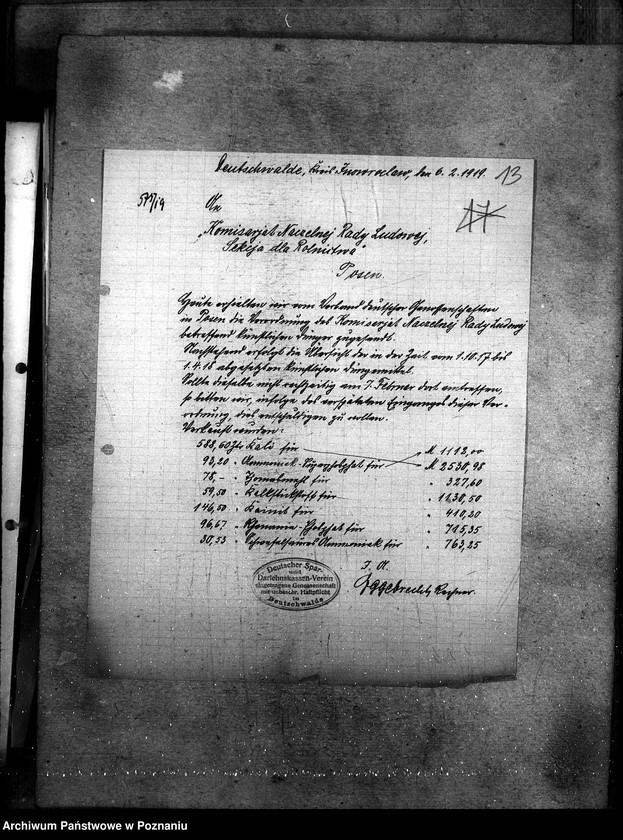 Deutschwalde, Kreis Inowroclaw, den 6.2.1919.
13
An
„Komisarjat Naczelnej Rady Ludowej,
Sekcja dla Rolnictwa"
Posen.
Heute erhielten wir vom Verband deutscher Genossenschaften
in Posen die Verordnung des Komisarjat Naczelnej Rady Ludowej
betreffend künstlichen Dünger zugesandt.
Nachstehend erfolgt die Übersicht der in der Zeit vom 1.10.17 bis
1.4.18 abgesetzten künstlichen Düngemittel.
Sollte dieselbe nicht rechtzeitig am 7. Februar dort eintreffen,
so bitten wir, infolge des verspäteten Eingangs dieser Ver-
ordnung, dies entschuldigen zu wollen.
Verkauft wurden:
588,60 Ztr Kali für M 1112,00
93,20 " Ammoniak-Superphosphat für M 2530,98
78,- " Thomasmehl für " 327,60
59,50 " Kalkstickstoff für " 1130,50
146,50 " Kainit für " 410,20
96,67 " Rhenania-Phosphat für " 715,35
30,53 " Schwefelsaures Ammoniak für " 763,25
Deutscher Spar-
und
Darlehnskassen-Verein
eingetragene Genossenschaft
mit unbeschr. Haftpflicht
in
Deutschwalde
I. A.
Rechner.
Archiwum Państwowe w Poznaniu